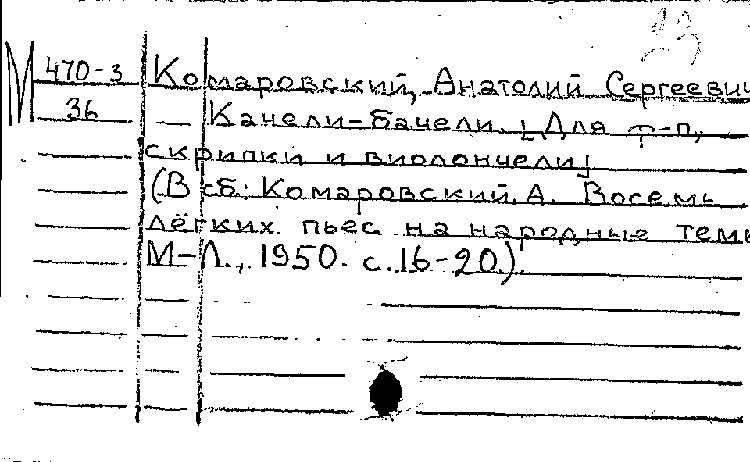 М 470-3 Комаровский, Анатолий Сергеевич
36 Канели-бачели. [Для ф-п,
скрипки и виолончели]
(В сб: Комаровский, А. Восемь
лёгких пьес на народные темы
М-Л., 1950. с. 16-20.).